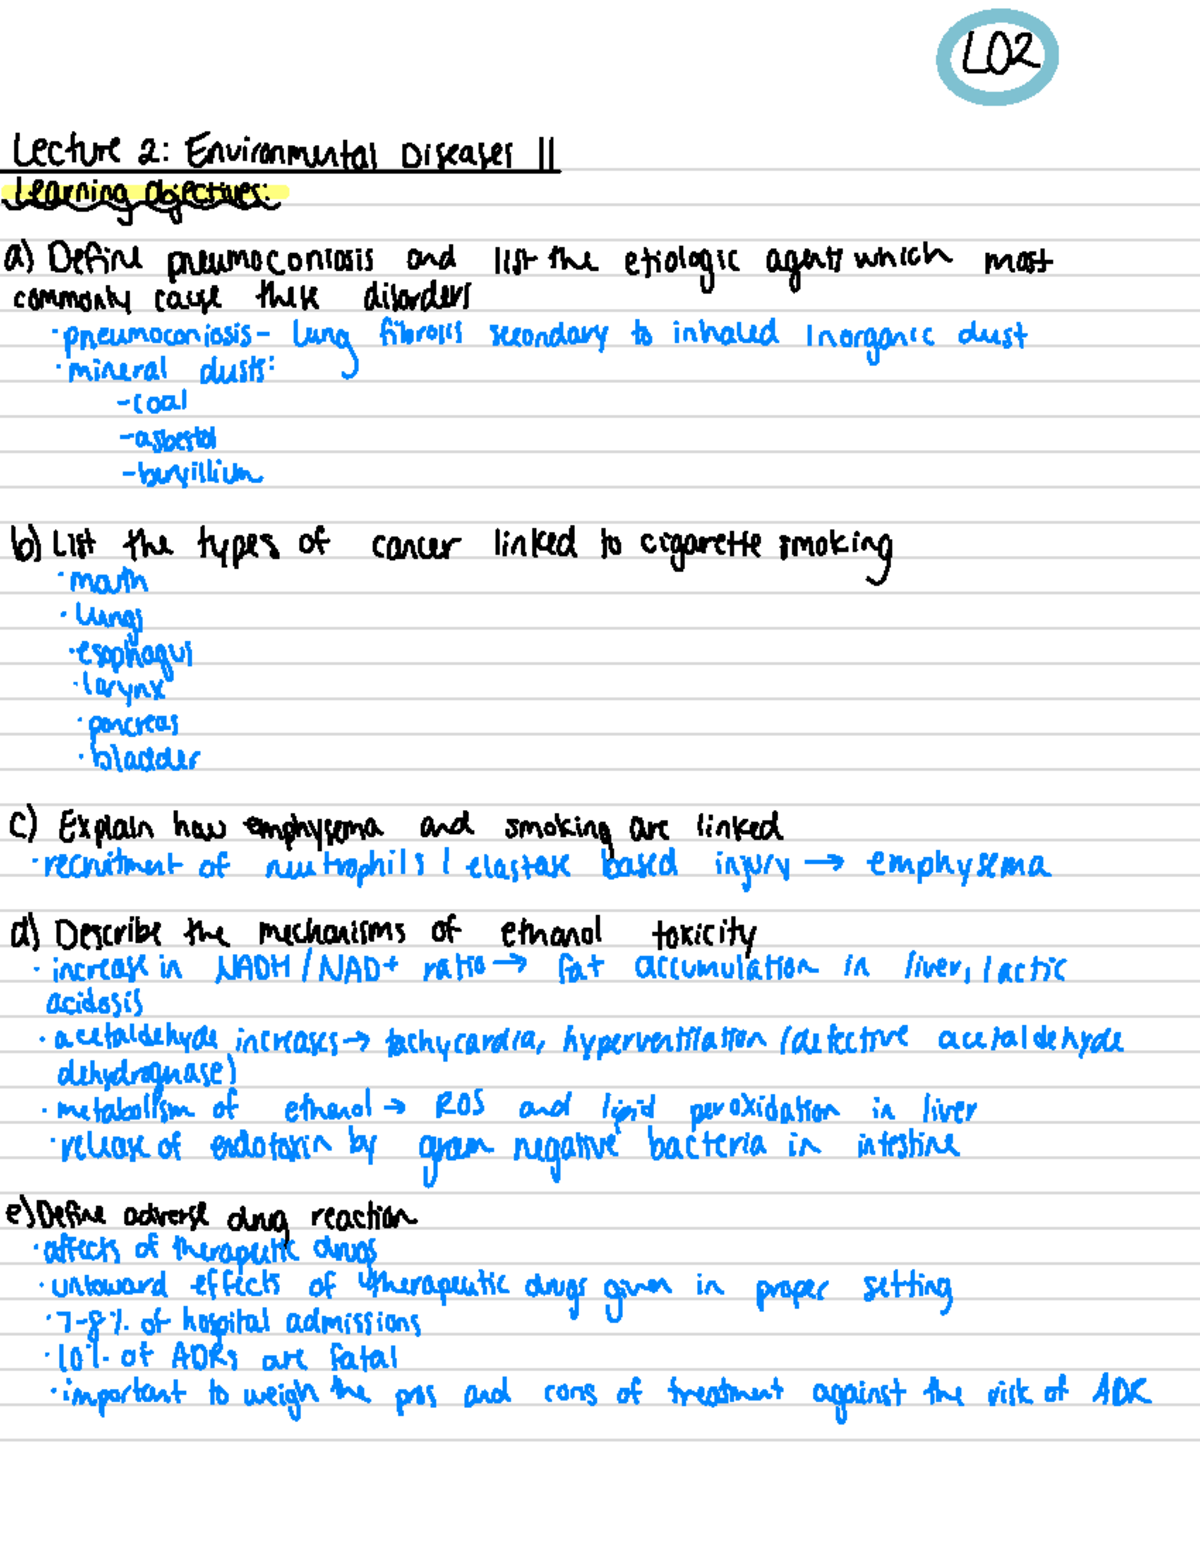 LO2
Lecture 2: Environmental Diseases II
Learning objectives:
a) Define pneumoconiosis and list the etiologic agents which most
commonly cause these disorders
· pneumoconiosis - lung fibrosis secondary to inhaled inorganic dust
· mineral dusts:
- coal
- asbestos
- beryllium
b) List the types of cancer linked to cigarette smoking
· mouth
· lungs
· esophagus
· larynx
· pancreas
· bladder
c) Explain how emphysema and smoking are linked
· recruitment of neutrophils / elastase based injury → emphysema
d) Describe the mechanisms of ethanol toxicity
· increase in NADH/NAD+ ratio → fat accumulation in liver, lactic
acidosis
· acetaldehyde increases → tachycardia, hyperventilation (defective acetaldehyde
dehydrogenase)
· metabolism of ethanol → ROS and lipid peroxidation in liver
· release of endotoxin by gram negative bacteria in intestine
e) Define adverse drug reaction
· affects of therapeutic drugs
· untoward effects of therapeutic drugs given in proper setting
· 7-8% of hospital admissions
· 10% of ADRs are fatal
· important to weigh the pros and cons of treatment against the risk of ADR